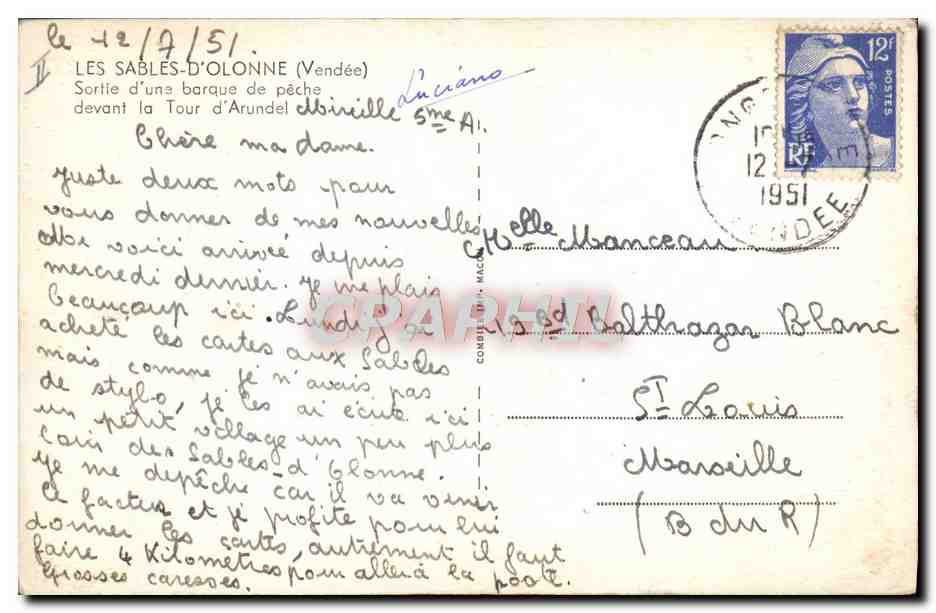 le 12/7/51.
II
LES SABLES-D'OLONNE (Vendée)
Sortie d'une barque de pêche
devant la Tour d'Arundel
Luciano
Mireille 5me A1.
Chère madame.
Juste deux mots pour
vous donner de mes nouvelles
Me voici arrivée depuis
mercredi dernier. Je me plais
beaucoup ici. Lundi j'ai
acheté les cartes aux Sables
mais comme je n'avais pas
de stylo, je les ai écrit ici
un petit village un peu plus
loin des Sables-d'Olonne.
Je me depêche car il va venir
le facteur et je profite pour lui
donner les cartes, autrement il faut
faire 4 Kilomètres pour aller à la poste.
Grosses caresses.
COMBIER IMP. MACON
12F
POSTES
RF
12
1951
VENDEE
Melle Manceau
13 Bd Balthazar Blanc
St Louis
Marseille
(B du R)
CPAPHIL